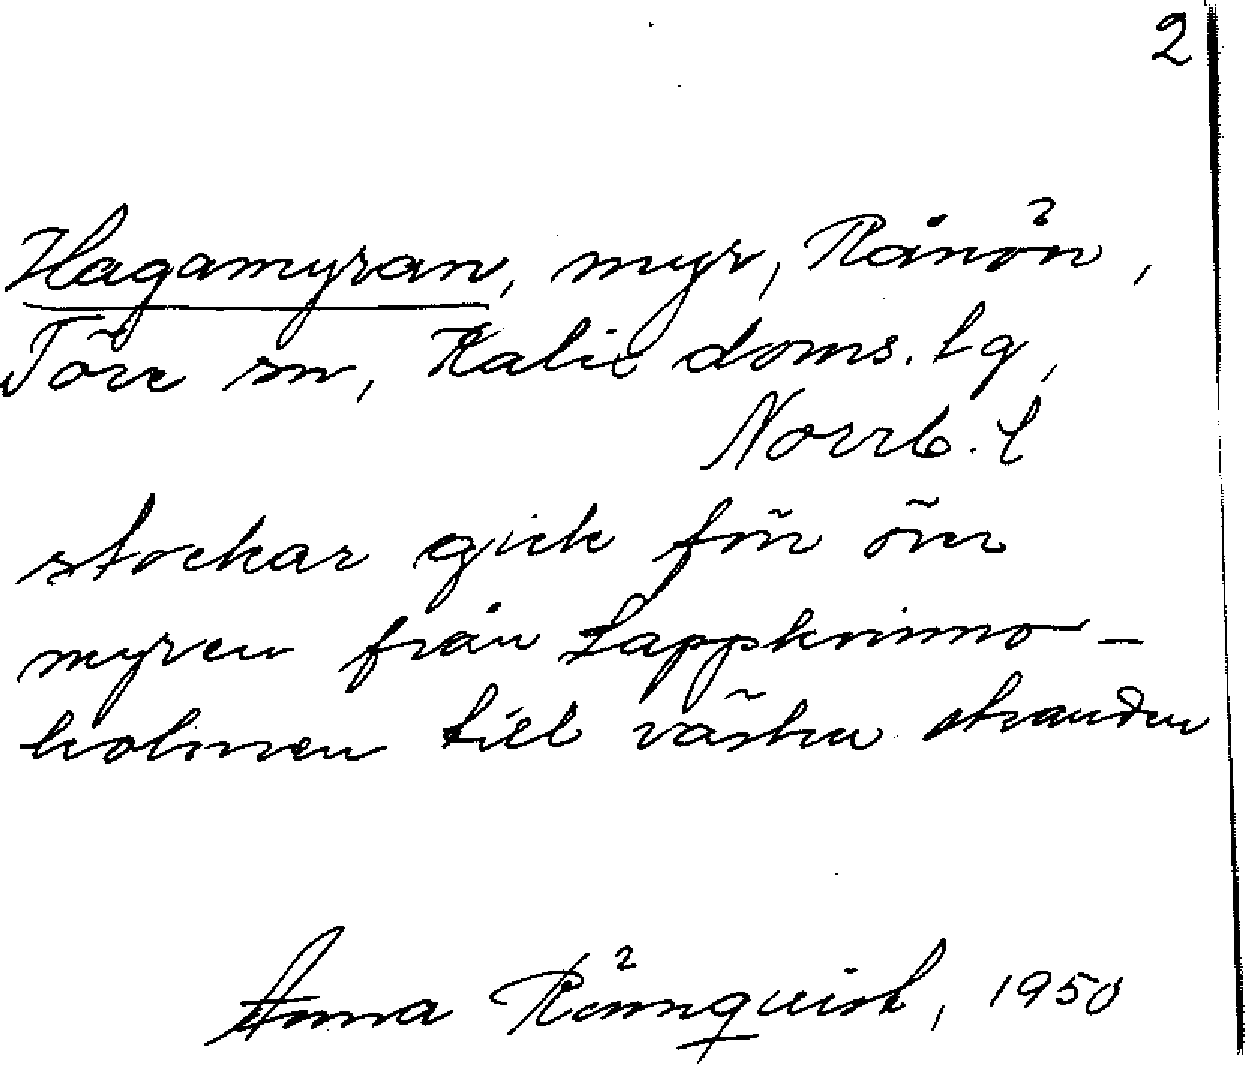 2
Hagamyran, myr, Rånön,
Töre sn, Kalix doms. lg,
Norrb. l
stockar gick förr över
myren från Lappkvinno-
holmen till västra stranden
Anna Rönnquist, 1950